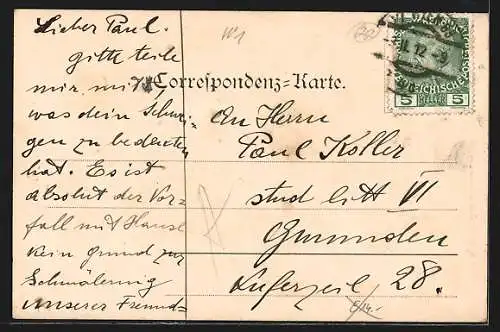 Lieber Paul.
gitte teile
mir mit,
was dein Schwei-
gen zu bedeuten
hat. Es ist
absolut der Vor-
fall mit Hansl
kein grund zur
Schmälerung
unserer Freund-
Correspondenz-Karte.
An Herrn
Paul Koller
stud litt VI
Gmunden
Kuferzeil 28.
5 HELLER 5
12